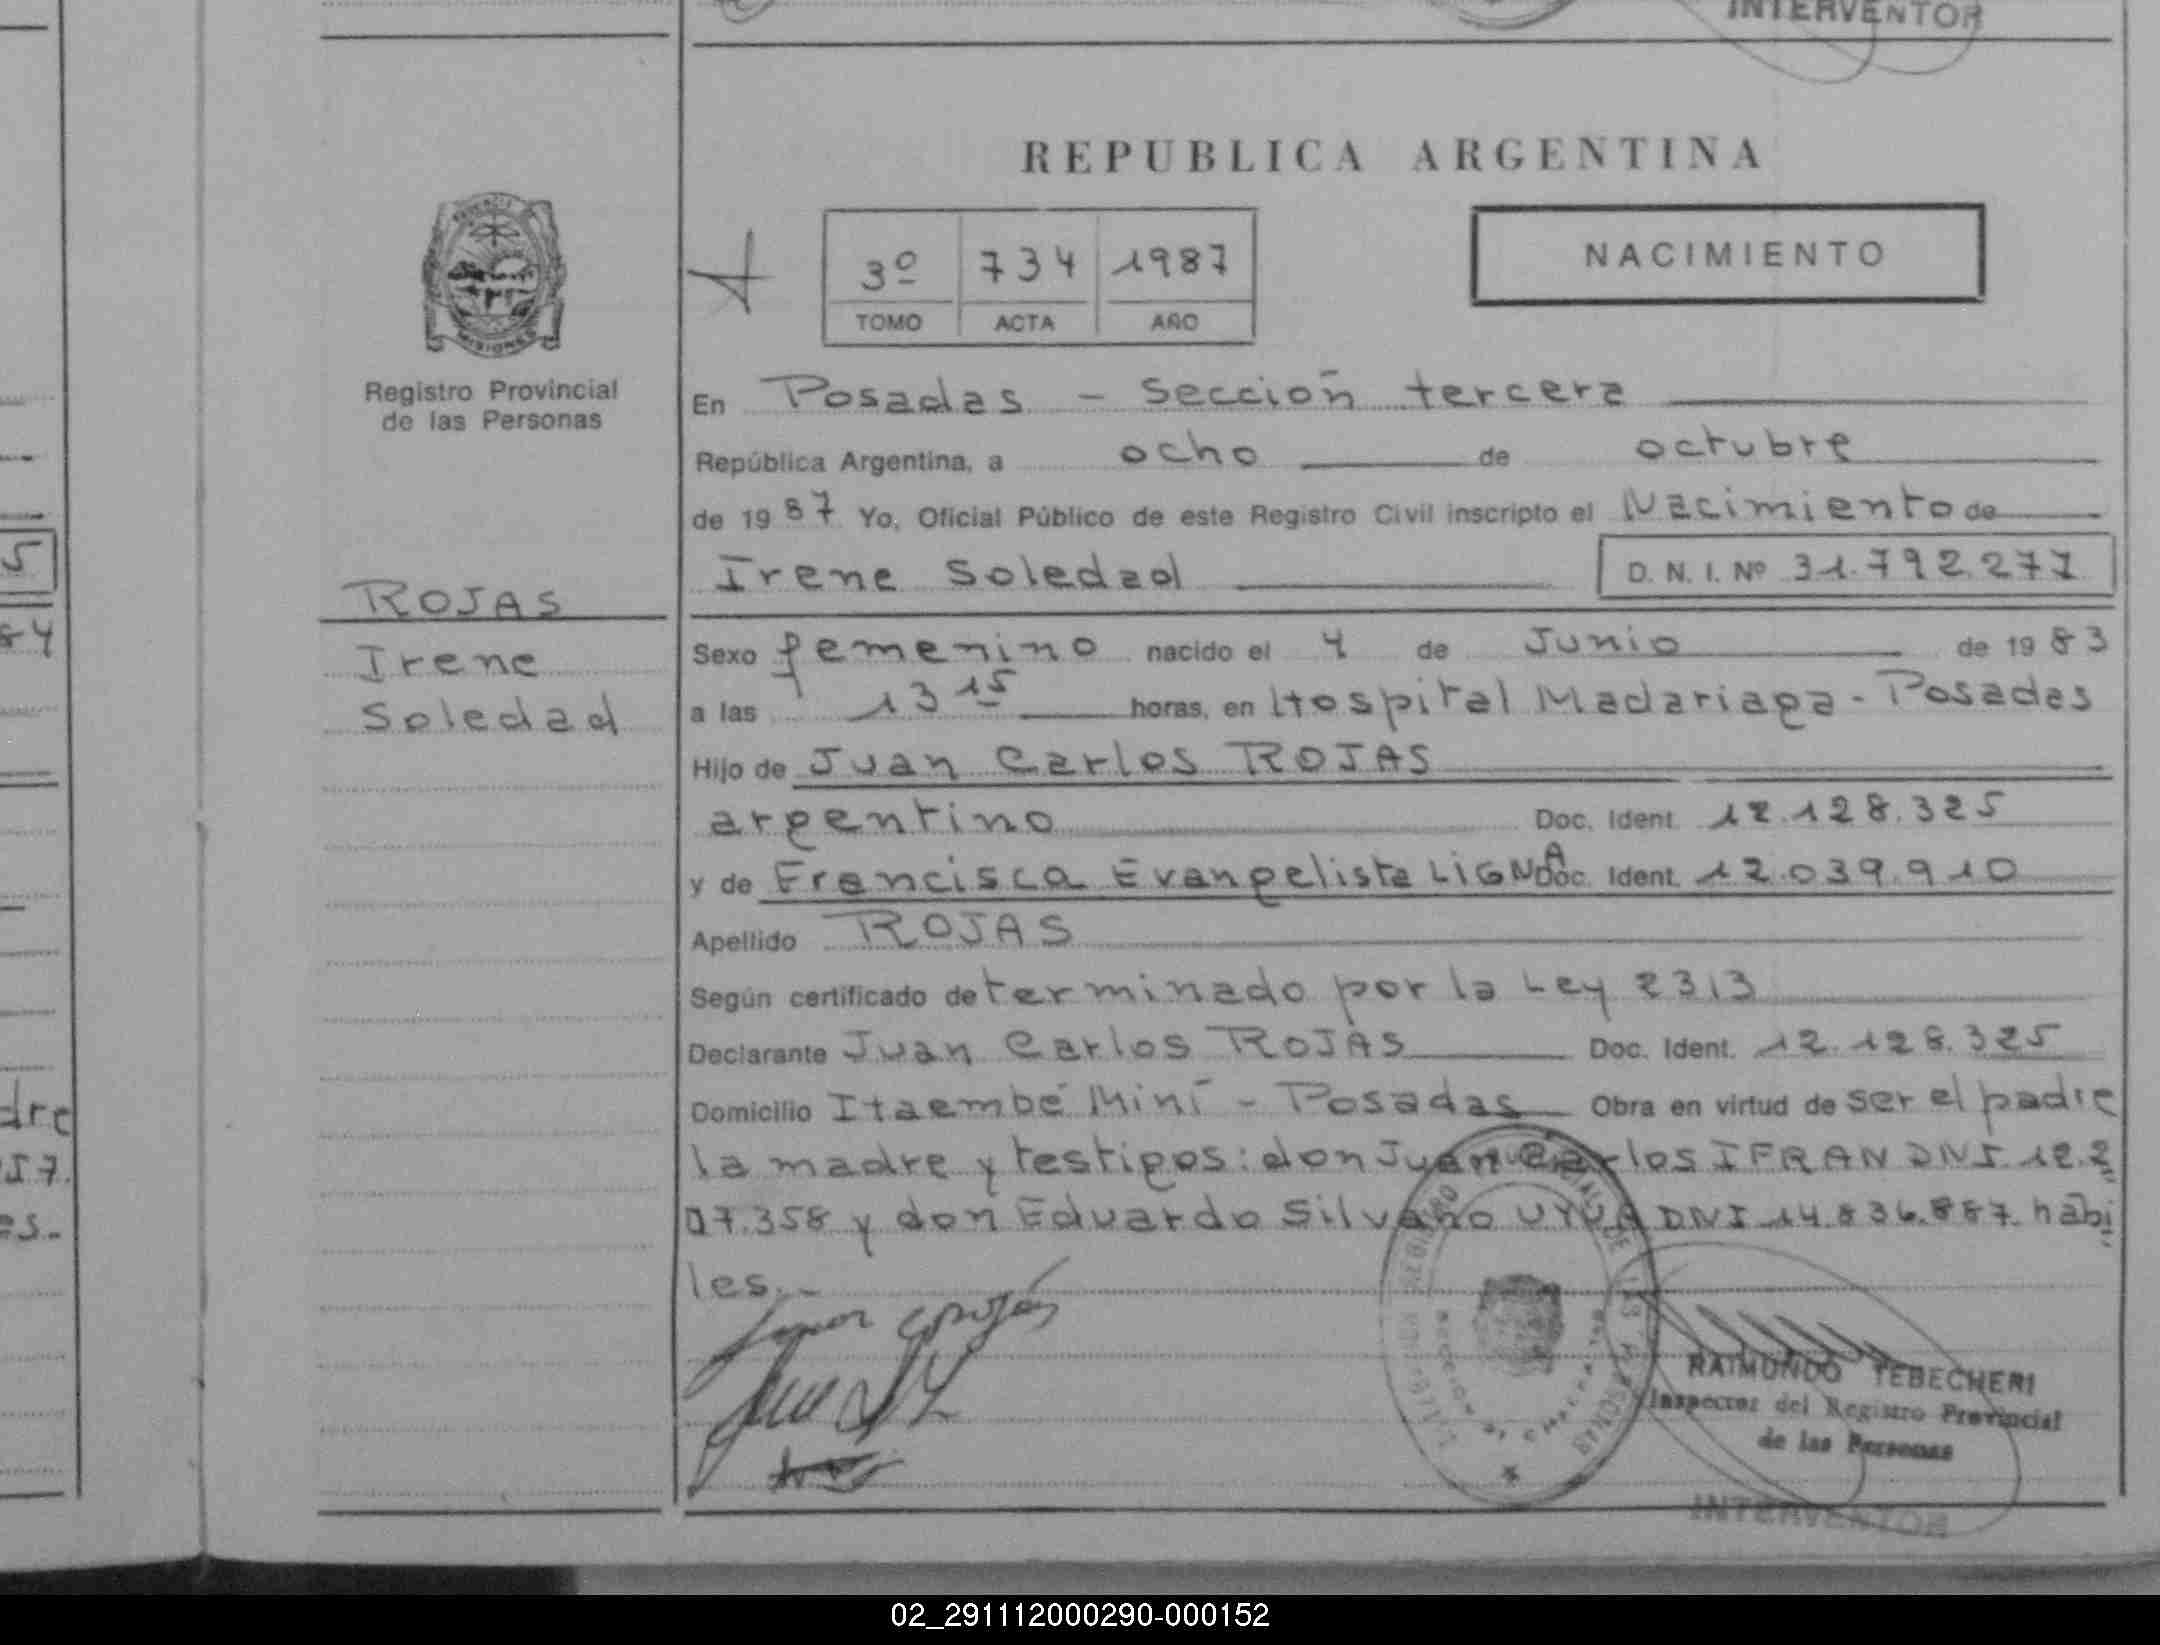 INTERVENTOR
REPUBLICA ARGENTINA
3º 734 1987
TOMO ACTA AÑO
NACIMIENTO
MISIONES
Registro Provincial
de las Personas
ROJAS
Irene
Soledad
En Posadas - Sección tercera
República Argentina, a ocho de octubre
de 1987 Yo, Oficial Público de este Registro Civil inscripto el Nacimiento de
Irene Soledad D. N. I. Nº 31.792.277
Sexo femenino nacido el 4 de Junio de 1983
a las 13 15 horas, en Hospital Madariaga - Posadas
Hijo de Juan Carlos ROJAS
argentino Doc. Ident. 12.128.325
y de Francisca Evangelista LIGNA Doc. Ident. 12.039.910
Apellido ROJAS
Según certificado determinado por la Ley 2313
Declarante Juan Carlos ROJAS Doc. Ident. 12.128.325
Domicilio Itaembé Miní - Posadas Obra en virtud de ser el padre
la madre y testigos: don Juan Carlos IFRAN DNI 12.2
07.358 y don Eduardo Silvano DNI 14.836.887 habi
les.-
RAIMUNDO TEBECHERI
Inspector del Registro Provincial
de las Personas
INTERVENTOR
5
84
dre
57.
es.-
02_291112000290-000152